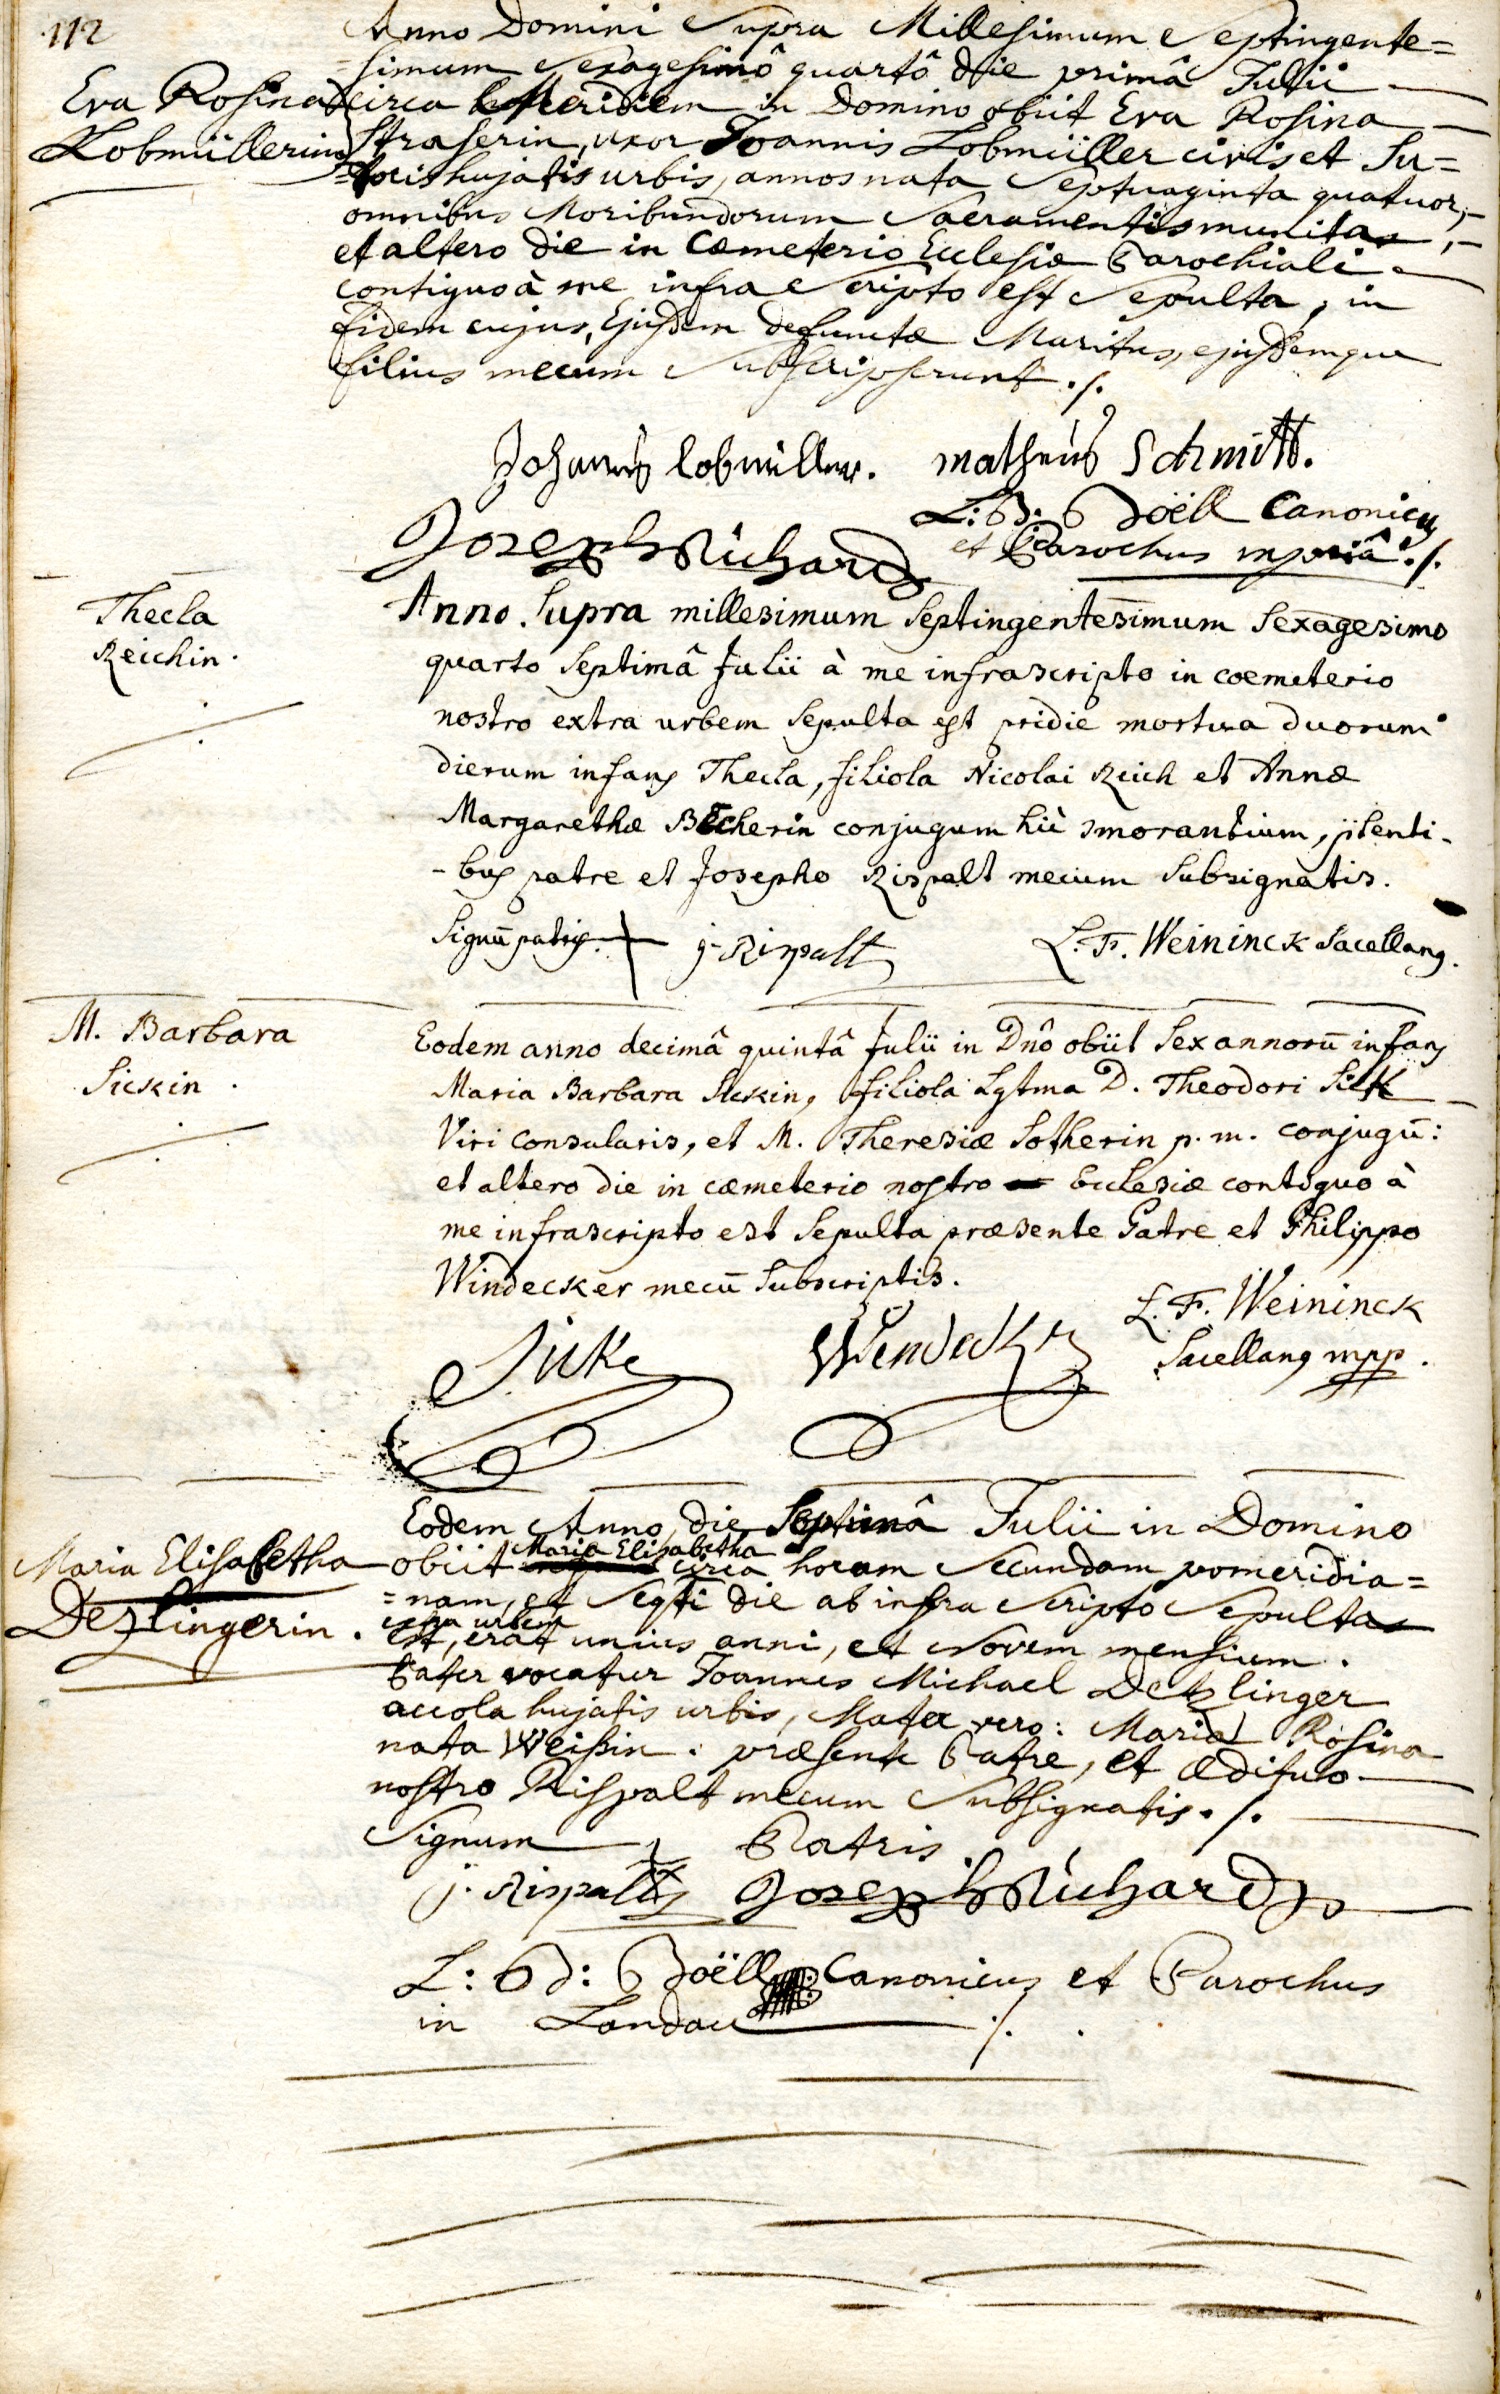 112
Anno Domini Supra Millesimum Septingente=
=simum Sexagesimô quartô die primâ Julii
Eva Rosina
Lobmüllerin
circa Meridiem in Domino obiit Eva Rosina
Straserin, uxor Joannis Lobmüller civis et Su=
=toris hujatis urbis, annos nata Septuaginta quatuor,
omnibus Moribundorum Sacramentis munita,
et altero die in Cæmeterio Ecclesiæ Parochiali
contiguo à me infra Scripto est Sepulta, in
fidem cujus, Ejusdem defunctæ Maritus, ejusdemque
filius mecum Subscripserunt ./.
Johannes lobmüller. matheus Schmitt.
Joseph Richard
L: Doëll Canonicus
et Parochus mpriâ ./.
Thecla
Reichin.
Anno Supra millesimum Septingentesimum Sexagesimo
quarto Septimâ Julii à me infrascripto in coemeterio
nostro extra urbem Sepulta est pridie mortua duorum
dierum infans Thecla, filiola Nicolai Reich et Annæ
Margarethæ Becherin conjugum hic morantium, pñtenti-
-bus patre et Josepho Rispalt mecum Subsignatis.
Signũ patris. j. Rispalt L. F. Weininck Sacellang.
M. Barbara
Sickin.
Eodem anno decimâ quintâ Julii in Dnô obiit Sex annorũ infans
Maria Barbara Sickin, filiola Lgtma D. Theodori Sick
Viri Consularis, et M. Theresiæ Sotherin p. m. conjugũ:
et altero die in cæmeterio nostro Ecclesiæ contiguo à
me infrascripto est Sepulta præsente Patre et Philippo
Windecker mecũ Subscriptis.
Sick Wendecker L. F. Weininck
Sacellang mpp.
Maria Elisabetha
Dezlingerin.
Eodem Anno, die Septimâ Julii in Domino
Maria Elisabetha
obiit circa horam Secundam pomeridia=
=nam, et Seqti die ab infra Scripto Sepulta
extra urbem
est, erat unius anni, et Novem mensium.
Pater vocatur Joannes Michael Detzlinger
accola hujatis urbis, Mater vero: Maria Rosina
nata Weissin. præsente Patre, et ædituo
nostro Rispalt mecum Subsignatis ./.
Signum Patris.
j. Rispalt Joseph Richard
L: Doëll Canonicus et Parochus
in Landau ./.